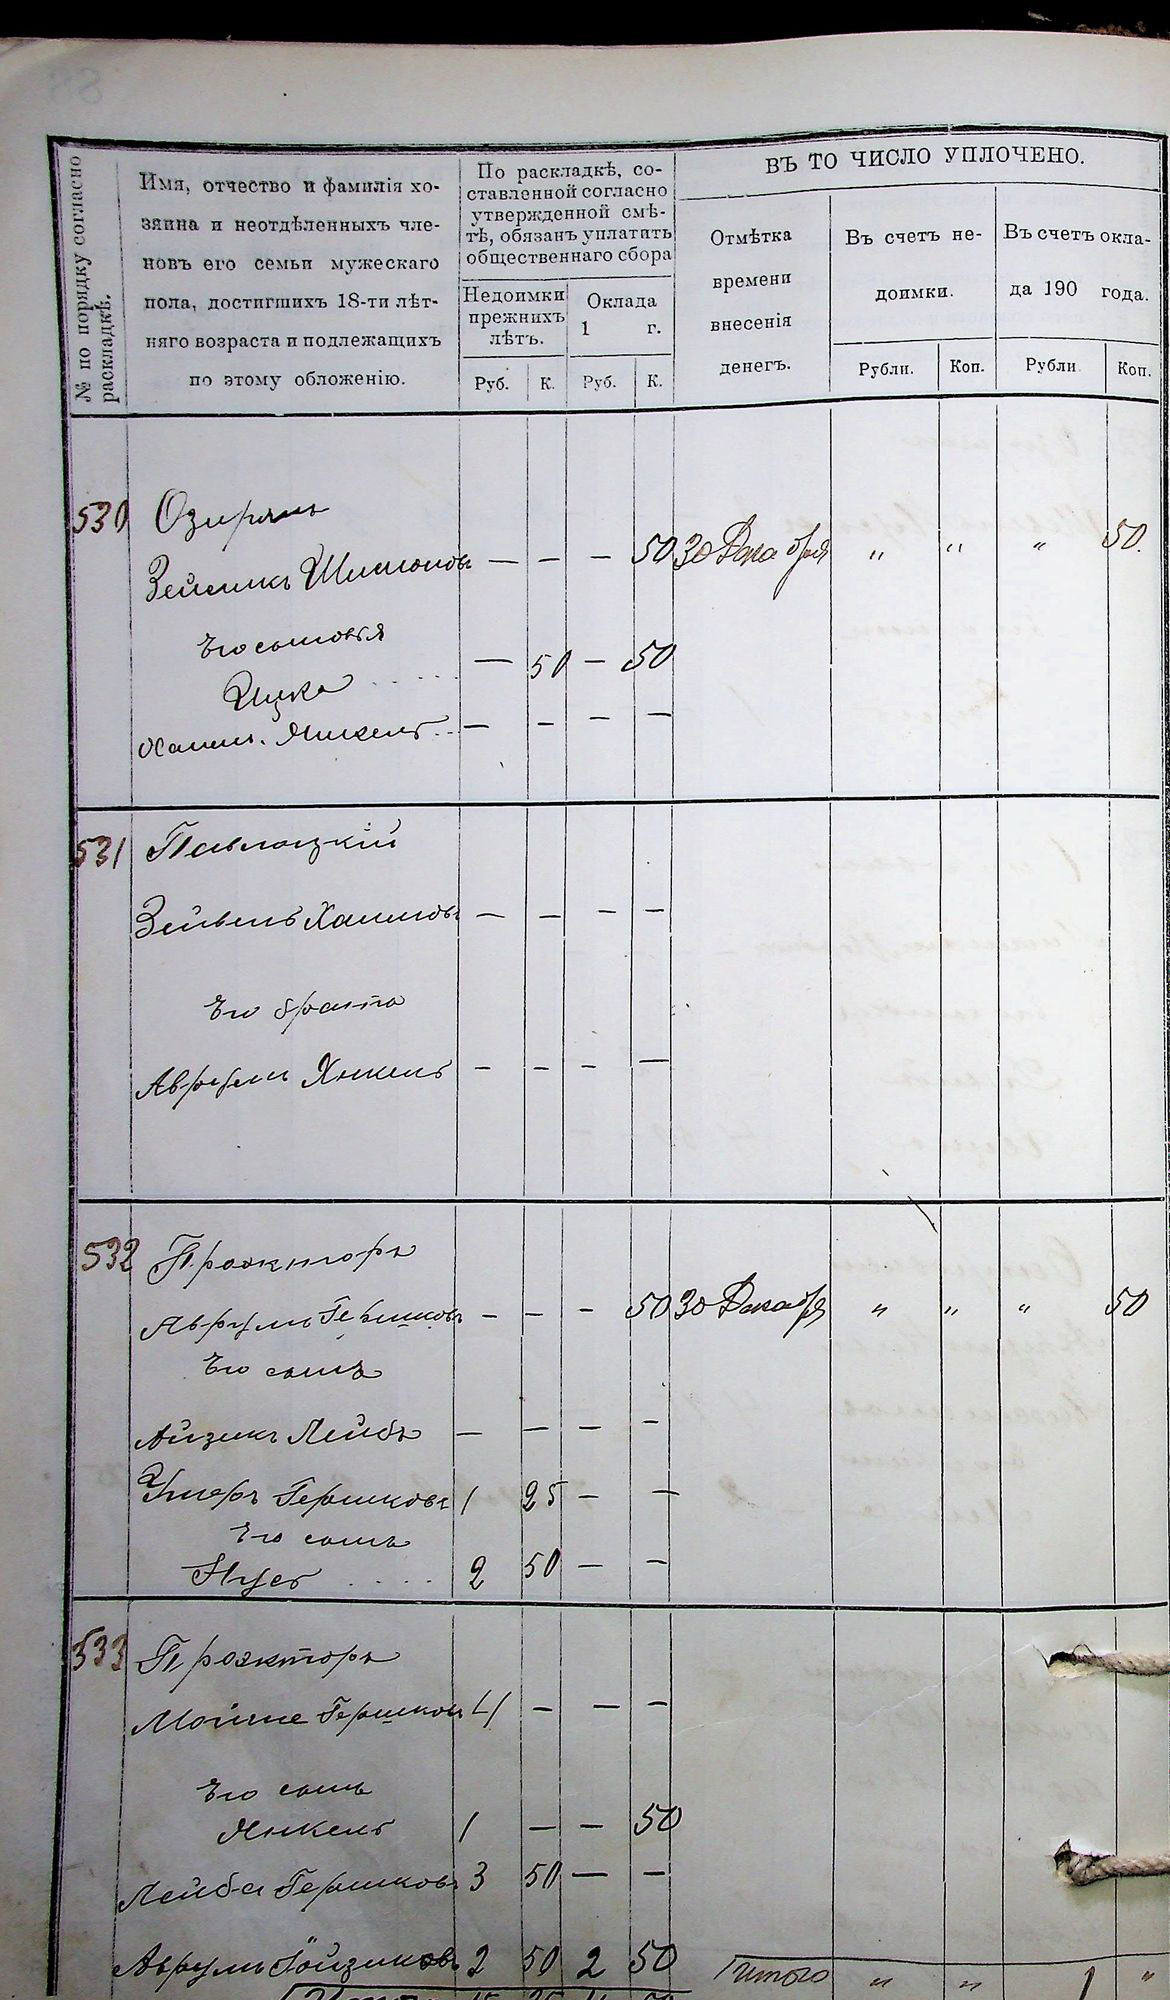 № по порядку согласно раскладкѣ.
Имя, отчество и фамилія хо-
зяина и неотдѣленныхъ чле-
новъ его семьи мужескаго
пола, достигшихъ 18-ти лѣт-
няго возраста и подлежащихъ
по этому обложенію.
По раскладкѣ, со-
ставленной согласно
утвержденной смѣ-
тѣ, обязанъ уплатить
общественнаго сбора
Недоимки
прежнихъ
лѣтъ.
Оклада
1 г.
Руб. К. Руб. К.
ВЪ ТО ЧИСЛО УПЛОЧЕНО.
Отмѣтка
времени
внесенія
денегъ.
Въ счетъ не-
доимки.
Въ счетъ окла-
да 190 года.
Рубли. Коп. Рубли Коп.
530 Озирянъ
Шимоновъ — — — 50 30 Декабря " " " 50.
Его сыновья
Ицко — 50 — 50
Янкель — — — —
531 Павлоцкій
Зейвель Хаимовъ — — — —
Его брата
Аврумъ Янкель — — — —
532 Прожкторъ
Аврумъ Гершковъ — — — 50 30 Декабря " " " 50
Его сынъ
Айзикъ Лейбъ — — — —
Гершковъ 1 25 — —
Его сынъ
2 50 — —
533 Прозкторъ
Мойше Гершковъ 4 — — —
Его сынъ
Янкель 1 — — 50
Лейба Гершковъ 3 50 — —
Аврумъ 2 50 2 50
Итого " " 1 "